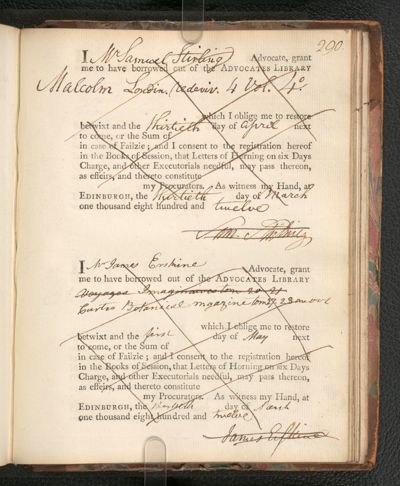 290
I Mr Samuel Stirling Advocate, grant
me to have borrowed out of the ADVOCATES LIBRARY
Malcolm Londin. Rediviv. 4 Vol. 4o.
which I oblige me to restore
betwixt and the Thirtieth day of April next
to come, or the Sum of
in case of Failzie; and I consent to the registration hereof
in the Books of Session, that Letters of Horning on six Days
Charge, and other Executorials needful, may pass thereon,
as effeirs, and thereto constitute
my Procurators. As witness my Hand, at
EDINBURGH, the Thirtieth day of March
one thousand eight hundred and twelve
Sam. Stirling
I Mr James Erskine Advocate, grant
me to have borrowed out of the ADVOCATES LIBRARY
Voyages Imaginaires tom 20 21
Curtis Botanical magazine tom 27 28
which I oblige me to restore
betwixt and the first day of May next
to come, or the Sum of
in case of Failzie; and I consent to the registration hereof
in the Books of Session, that Letters of Horning on six Days
Charge, and other Executorials needful, may pass thereon,
as effeirs, and thereto constitute
my Procurators. As witness my Hand, at
EDINBURGH, the day of March
one thousand eight hundred and twelve
James Erskine